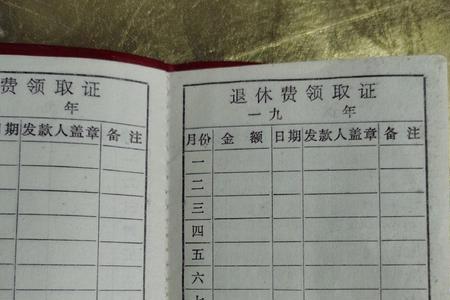 费领取证
年
日期 发款人盖章 备注
退休费领取证
一九 年
月份 金额 日期 发款人盖章 备注
一
二
三
四
五
六